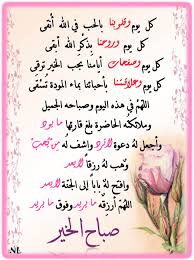 كل يوم وقلوبنا بالحب في الله أنقى
كل يوم وروحنا بذكر الله أبقى
كل يوم وصفحات أيامنا بحب الخير ترقى
كل يوم وعلاقتنا بأحبائنا بماء المودة تُسقى
اللهم في هذه اليوم وصباحه الجميل
وملائكته الحاضرة بلغ قارئها ما يود
وأجمل له دعوة لاترد واشف له من يحب
وهب له رزقاً لايعد
وافتح له باباً إلى الجنة لايعد
اللهم أرزقه ما يريد وفوق ما يريد
صباح الخير
NL